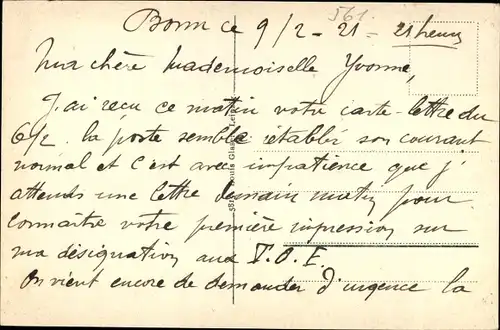 561.
Bonn ce 9/2 - 21 - 21 heures
Ma chère Mademoiselle Yvonne,
J'ai reçu ce matin votre carte-lettre du
6/2. la poste semble rétablir son courant
normal et c'est avec impatience que j'
attends une lettre demain matin pour
connaître votre première impression sur
ma désignation aux T.O.E.
On vient encore de demander d'urgence la
Louis Glaser, Leipzig